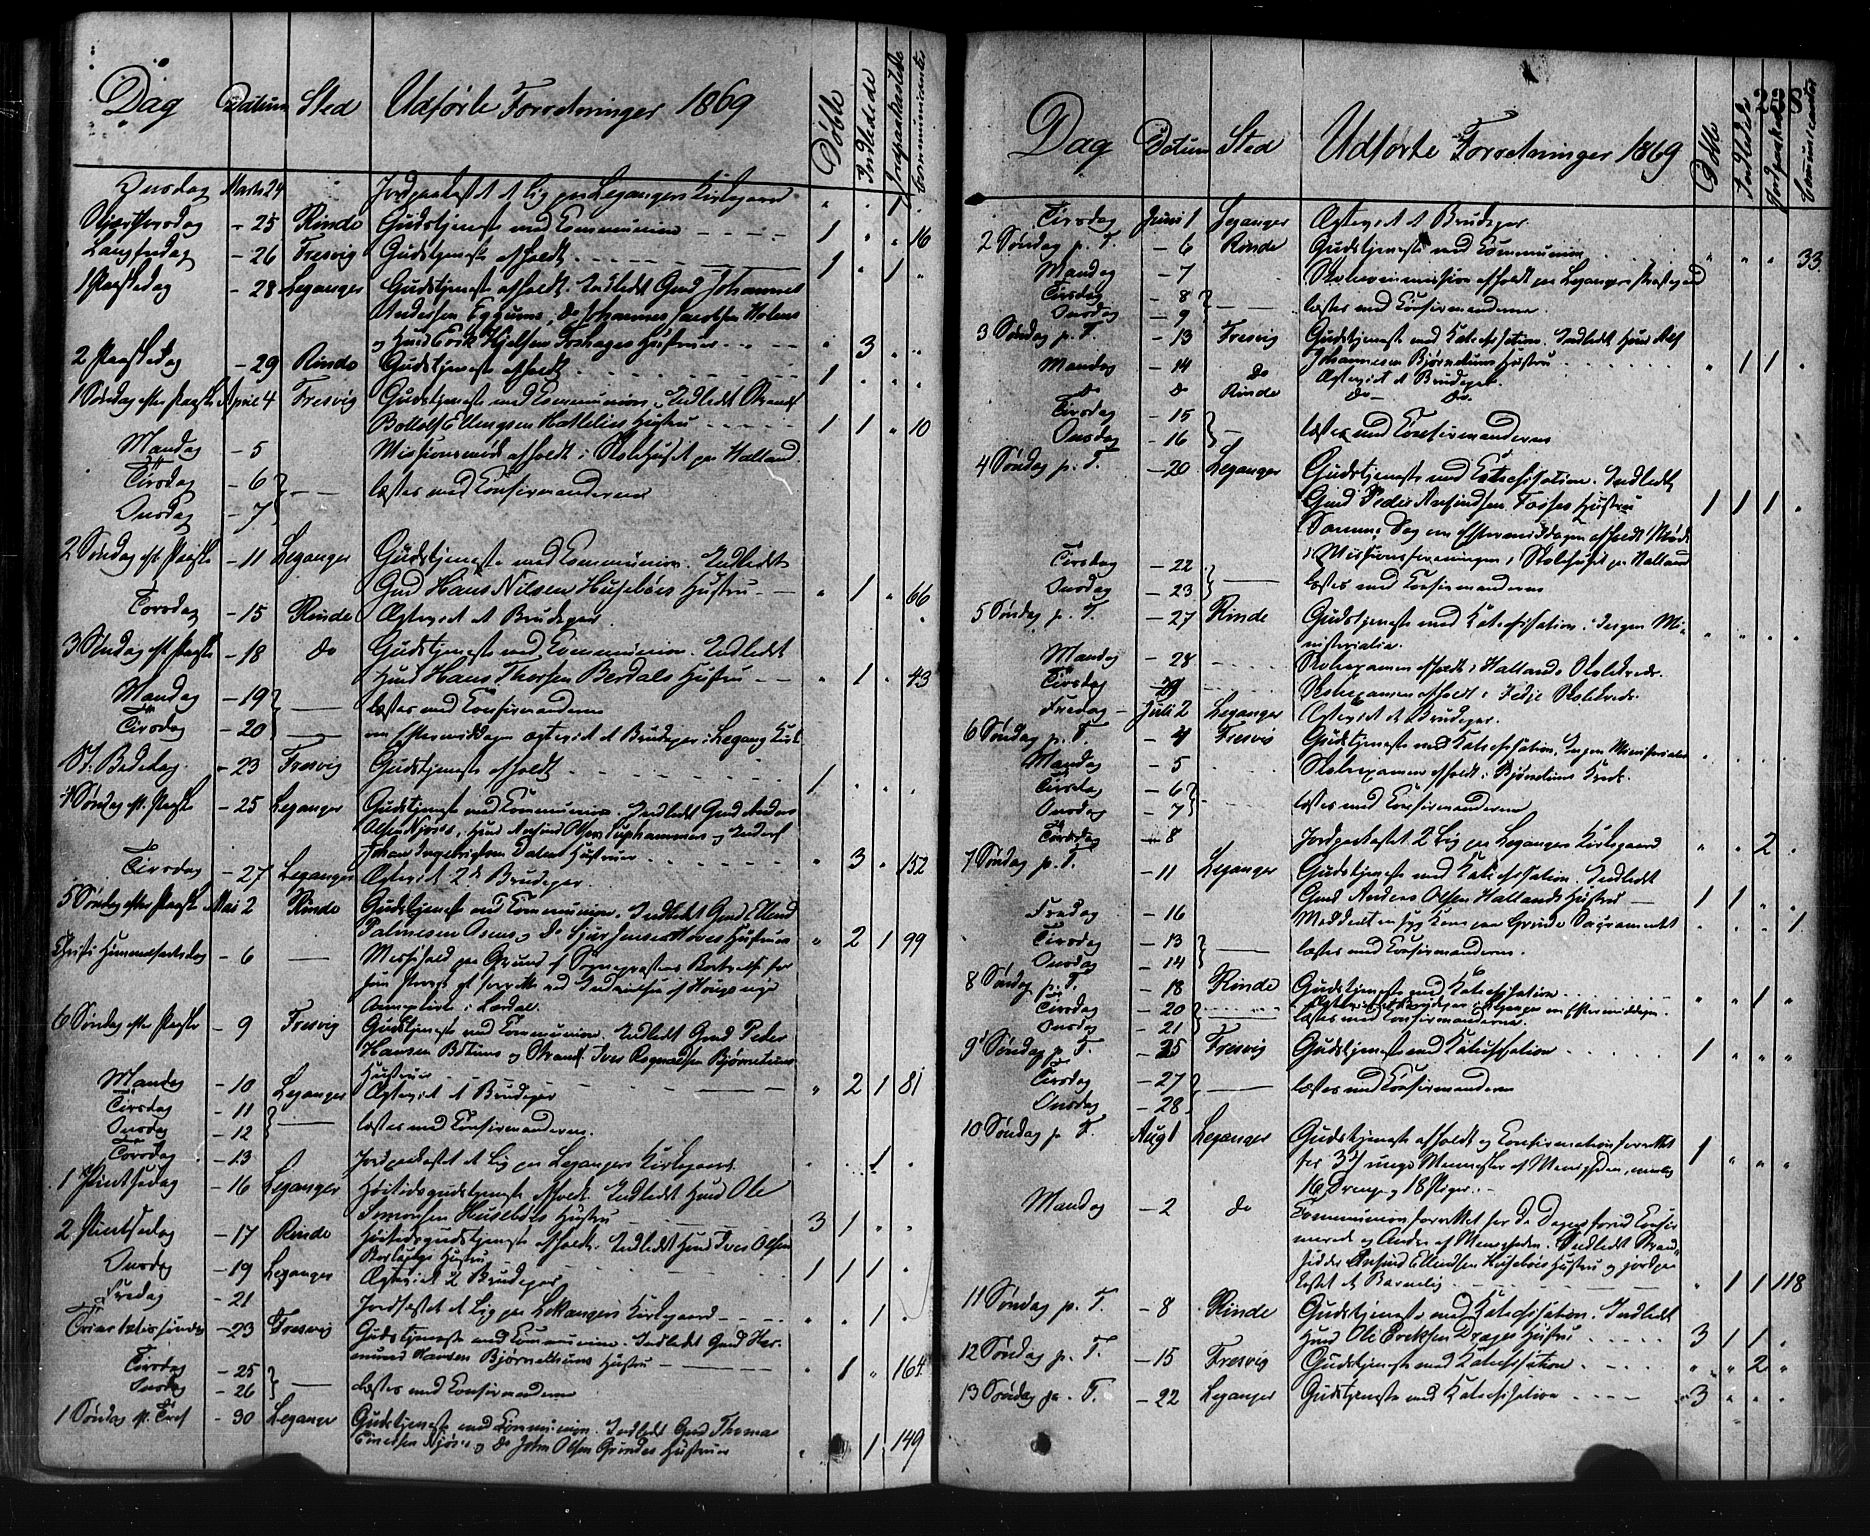 Dag Datum Sted Udførte Forretninger 1869 Døbte Indledede Jordpaakastede Communicanter
Onsdag Marts 24 Jordpaakastet et Lig paa Leganger Kirkegaard
Skjærthorsdag - 25 Rinde Gudstjeneste med Communion 1 " " 16
Langfredag - 26 Fresvig Gudstjeneste afholdt 1 " 1 "
1 Paaskedag - 28 Leganger Gudstjeneste afholdt. Indledt Gmd Johannes
Andersen Eggums, do Johannes Jacobsen Holens
og Husm Erik Hustruer " 3 " "
2 Paaskedag - 29 Rinde Gudstjeneste afholdt 1 " " "
1 Søndag efter Paaske April 4 Fresvig Gudstjeneste med Communion. Indledt Strands
Ellingsen Hustru 1 1 " 10
Mandag - 5 Missionsmøde afholdt i Skolehuset paa Halland
Tirsdag - 6 læstes med Confirmanderne
Onsdag - 7
2 Søndag eft Paaske - 11 Leganger Gudstjeneste med Communion. Indledt
Gmd Hans Nilsen Husebøes Hustru " 1 " 66
Torsdag - 15 Rinde Ægteviet et Brudepar
3 Søndag eft Paaske - 18 do Gudstjeneste med Communion. Indledt
Husmd Hans Thorsen Berdals Hustru " 1 " 43
Mandag - 19 læstes med Confirmanderne
Tirsdag - 20 om Eftermiddagen ægteviet et Brudepar i Legang Kirk
Bededag - 23 Fresvig Gudstjeneste afholdt 1 " " "
4 Søndag eft. Paaske - 25 Leganger Gudstjeneste med Communion. Indledt Gmd Anders
Olsen Njøses, Husmd Olsen og Inderst
Johan Ingebrigtsen Dalens Hustruer " 3 " 152
Tirsdag - 27 Leganger Ægteviet 2de Brudepar.
5 Søndag efter Paaske Mai 2 Rinde Gudstjeneste med Communion. Indledt Gmd Ellend
Palmesen og do Sjur Jensen Hustruer " 2 1 99
Christi Himmelfartsdag - 6 Messefald paa Grund af Sognepræstens Bortreise for
som Provst at forrette ved Indvielsen af Hougs nye
Annexkirke i Lærdal.
6 Søndag efter Paaske - 9 Fresvig Gudstjeneste med Communion. Indledt Gmd Peder
Hansen Bøtuns og Strands. Iver Rognaldsen Bjørnetuns
Hustruer " 2 1 81
Mandag - 10 Leganger Ægteviet et Brudepar
Tirsdag - 11 læstes med Confirmanderne.
Onsdag - 12
Torsdag - 13 Jordpaakastet et Lig paa Leganger Kirkegaard. " 1 "
1 Pintsedag - 16 Leganger Høitidsgudstjeneste afholdt. Indledt Husmd Ole
Simonsen Husebøes Hustru 3 1 " "
2 Pintsedag - 17 Rinde Høitidsgudstjeneste afholdt. Indledt Husmd Iver Olsen
Hustru 1 1 1 "
Onsdag - 19 Leganger Ægteviet 2 Brudepar
Fredag - 21 Jordfæstet et Lig paa Lekanger Kirkegaard " " 1 "
Trinitatissøndag - 23 Fresvig Gudstjeneste med Communion. Indledt Gmd Her-
mund Hansen Bjørnetuns Hustru " 1 " 164
Tirsdag - 25 læstes med Confirmanderne
Onsdag - 26
1 Søndag p. Tref - 30 Leganger Gudstjeneste med Communion. Indledt Gmd Thomas
Njøses og do John Olsen Grindes Hustruer " 1 149
228
Dag Datum Sted Udførte Forretninger 1869 Døbte Indledede Jordpaakastede Communicanter
Tirsdag Juni 1 Leganger Ægteviet et Brudepar.
2 Søndag p. T. - 6 Rinde Gudstjeneste med Communion " " " 33
Mandag - 7 Skolecommission afholdt paa Leganger Præstegaard
Tirsdag - 8 læstes med Confirmanderne
Onsdag - 9
3 Søndag p. T. - 13 Fresvig Gudstjeneste med Katechisation. Indledt Husmd
Johannesen Bjørnetuns Hustru " 1 1 "
Mandag - 14 do Ægteviet et Brudepar.
do do Rinde do do
Tirsdag - 15 læstes med Confirmanderne
Onsdag - 16
4 Søndag p. T. - 20 Leganger Gudstjeneste med Katechisation. Indledt
Gmd Peder Hustru 1 1 1 "
Samme Dag om Eftermiddagen afholdt Møde
i Missionsforeningen i Skolehuset paa Halland
Tirsdag - 22 læstes med Confirmanderne
Onsdag - 23
5 Søndag p. T. - 27 Rinde Gudstjeneste med Katechisation. Ingen Mi-
nisterialia. " " " "
Mandag - 28 Skoleexamen afholdt i Hallands Skolekreds.
Tirsdag - 29 Skoleexamen afholdt i Fedje Skolekreds.
Fredag - Juli 2 Leganger Ægteviet et Brudepar.
6 Søndag p. T. - 4 Fresvig Gudstjeneste med Katechisation, Ingen Ministerialia
Mandag - 5 Skoleexamen afholdt i Bjørnetuns Kreds.
Tirsdag - 6 læstes med Confirmanderne
Onsdag - 7
Torsdag - 8 Jordpaakastet 2 Lig paa Leganger Kirkegaard " " 2 "
7 Søndag p. T. - 11 Leganger Gudstjeneste med Katechisation. Indledt
Gmd Anders Olsen Hallands Hustru 1 1 " "
Fredag - 16 Meddeelt en syg Kone paa Grinde Sacramentet " " " 1
Tirsdag - 13 læstes med Confirmanderne.
Onsdag - 14
8 Søndag p. T. - 18 Rinde Gudstjeneste med Katechisation " " 1 "
Tirsdag - 20 Ægteviet et Brudepar i Leganger om Eftermiddagen.
Onsdag - 21 læstes med Confirmanderne.
9 Søndag p. T. - 25 Fresvig Gudstjeneste med Katechisation 1 " " "
Tirsdag - 27 læstes med Confirmanderne
Onsdag - 28
10 Søndag p. T. Aug 1 Leganger Gudstjeneste afholdt og Confirmation forrettet
for 34 unge Mennesker af Menigheden, nemlig 1 " " "
16 Drenge og 18 Piger.
Mandag - 2 do Communion forrettet for de Dagen forud Confir-
merede og Andre af Menigheden. Indledt Strand-
sidder Ellendsen Husebøes Hustru og jordpaa-
kastet et Barnelig " 1 1 118
11 Søndag p. T. - 8 Rinde Gudstjeneste med Katechisation. Indledt
Husmd Ole Eriksen Hustru 3 1 1 "
12 Søndag p. T. - 15 Fresvig Gudstjeneste med Katechisation " " 2 "
13 Søndag p. T. - 22 Leganger Gudstjeneste med Katechisation 3 " " "